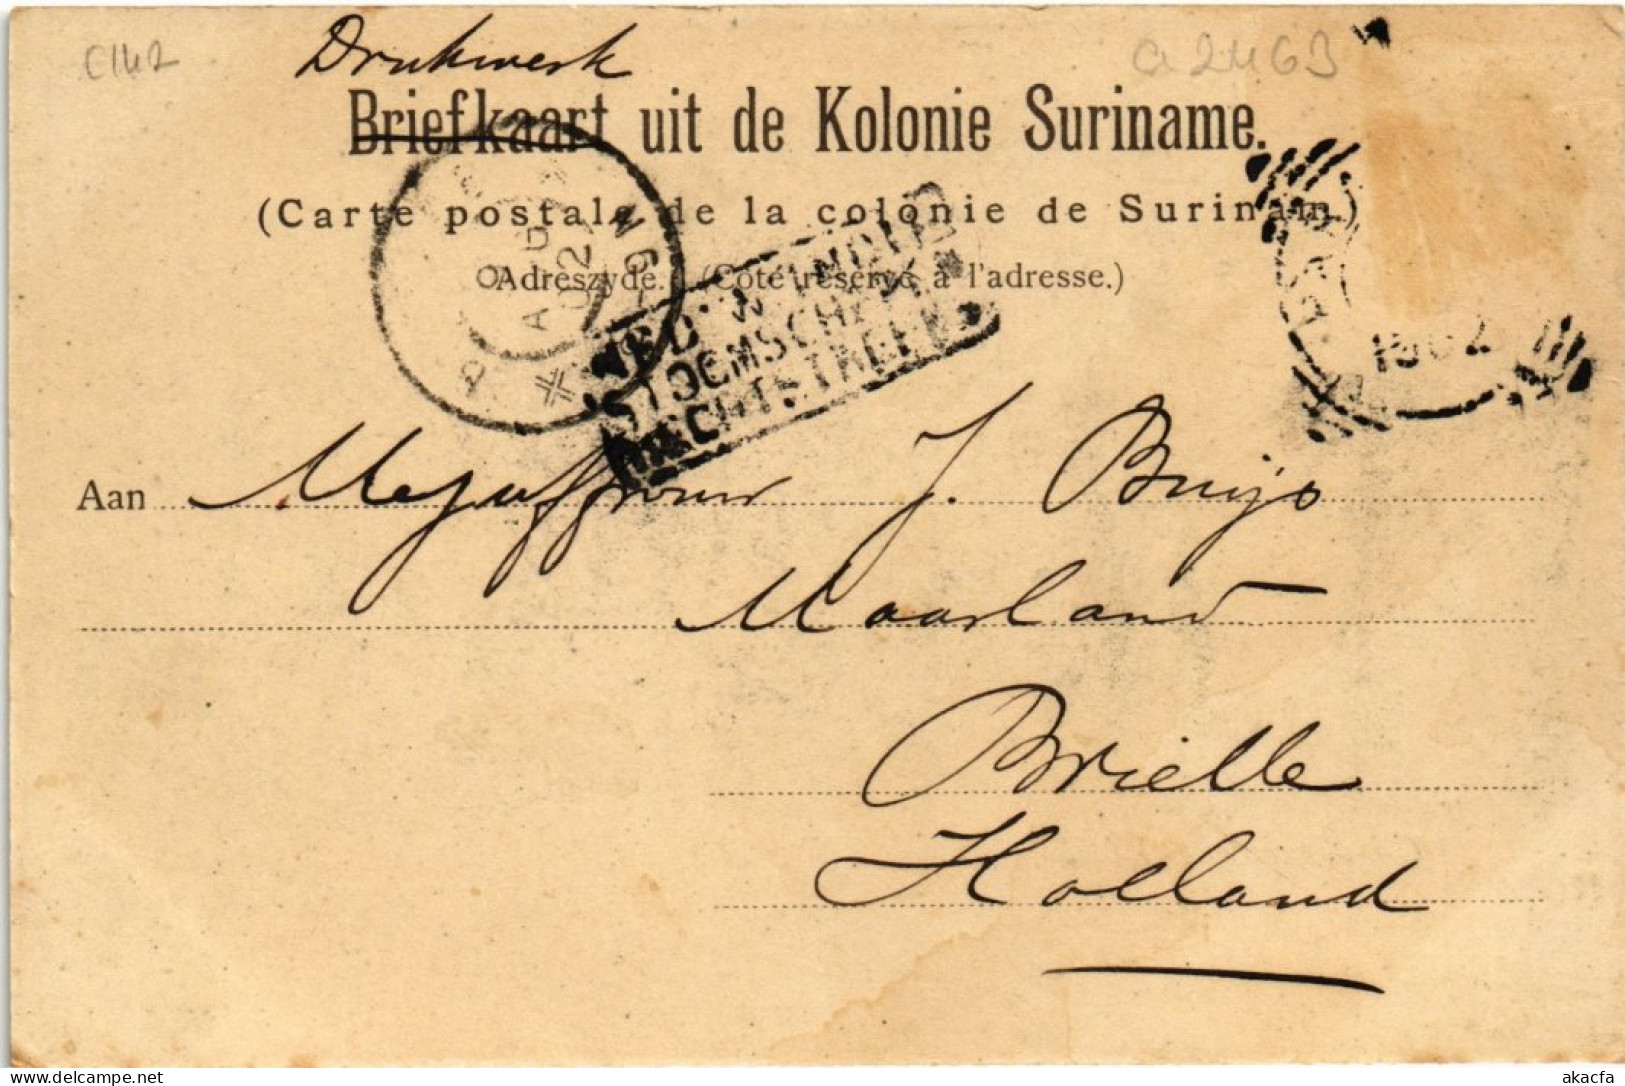 C142
a2463
Drukwerk
Briefkaart uit de Kolonie Suriname.
(Carte postale de la colonie de Surinam.)
Adreszyde. (Coté réservé à l'adresse.)
NED: W. INDIE
STOOMSCHEPEN
RECHTSTREEKS
1902
Aan Mejuffrouw J. Buijs
Maarland
Brielle
Holland
akacfa